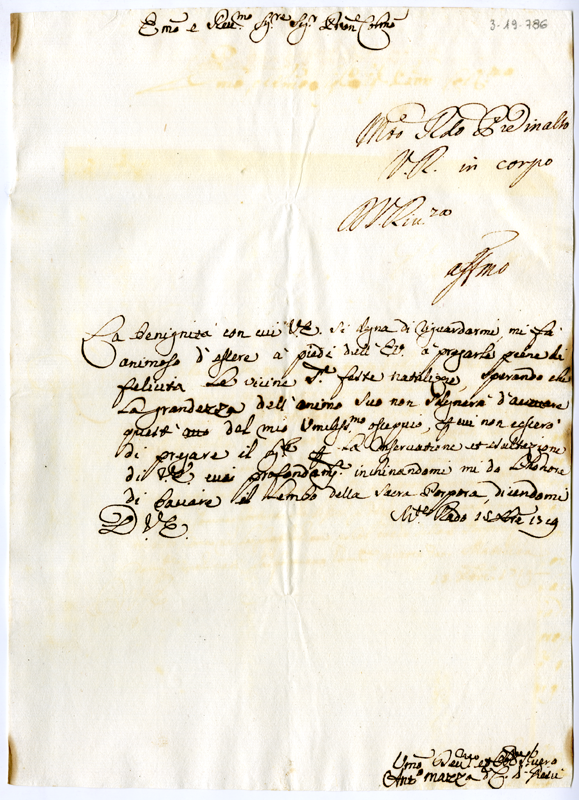 Emo e Reu.mo Sig.re Sig.r Pron Colmo
3-19-786
Mto Aldo
V. R. in corpo
affmo
La benignità con cui V.E. si degna di riguardarmi, mi fà
animoso d'essere a' piedi dell' Em. a' pregarle piene di
felicità Le vicine S.te feste natalizie, sperando che
La grandezza dell' animo suo non sdegnerà d'accettare
quest' atto dal mio Umiliss.mo ossequio, e qui non essero'
di pregare il Sig.re La Conservatione et esaltazione
di V.E. cui profondam.te inchinandomi mi do L'honore
di baciare il Lembo della Sacra Porpora, dicendomi
D. V. E.
M.te Xbre 1719
Umo Deu.mo et Seruo
Ant.o mazza